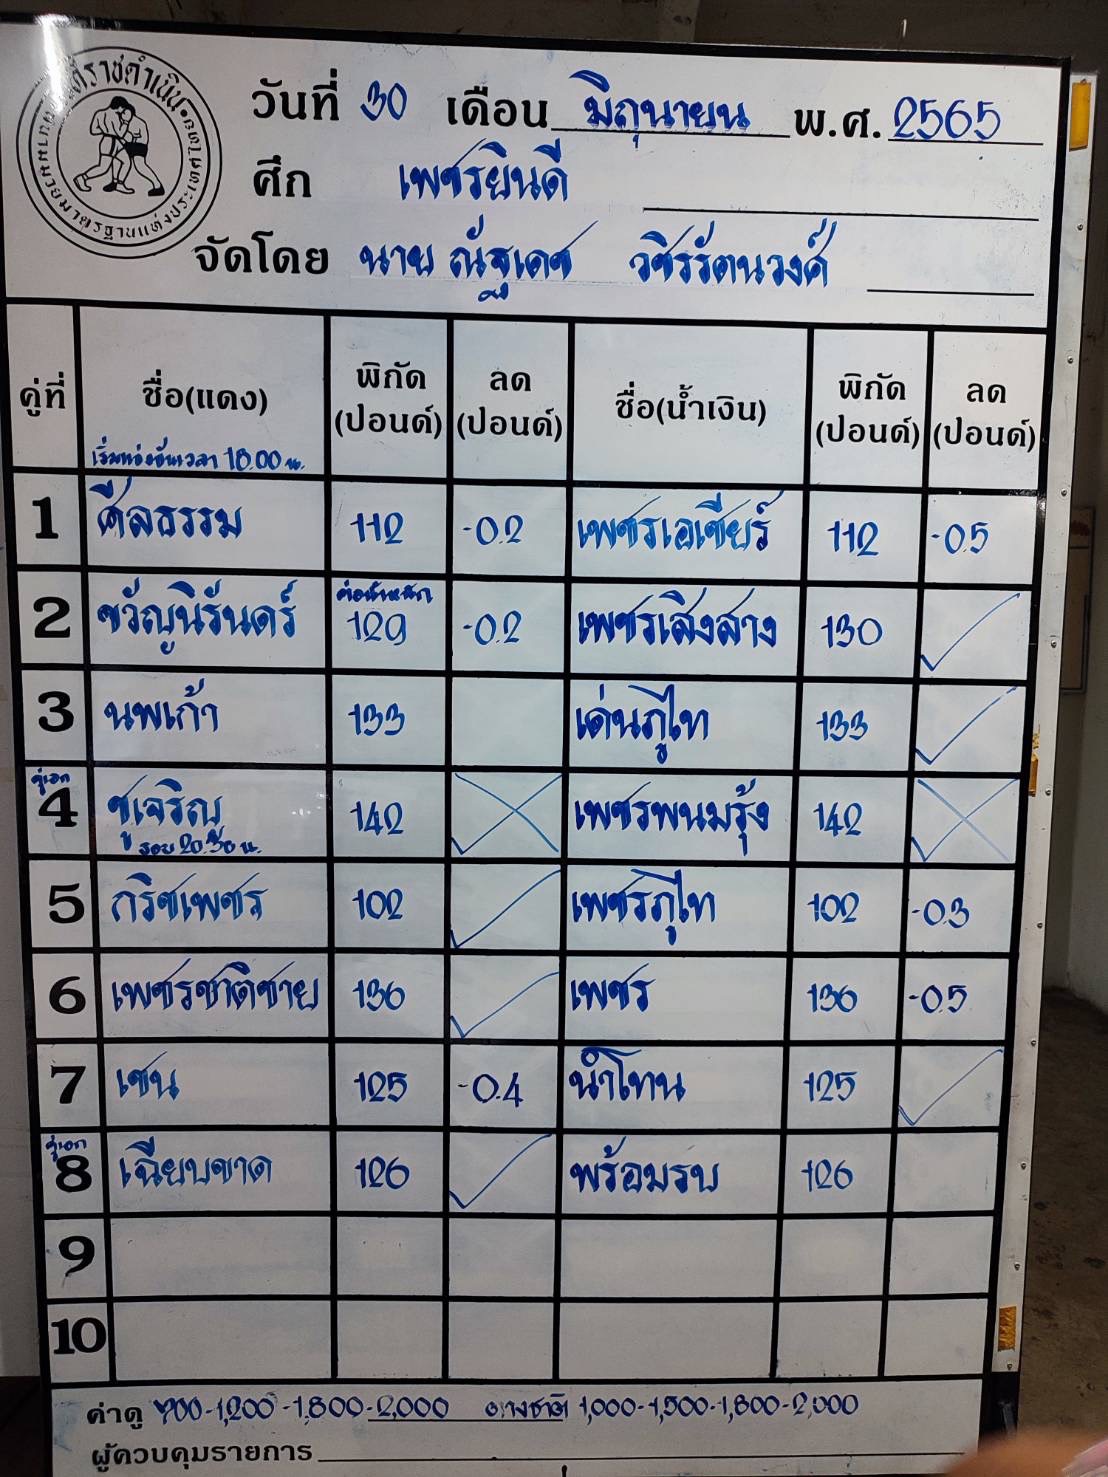 สนามมวยมาตรฐานแห่งประเทศไทย
วันที่ 30 เดือน มิถุนายน พ.ศ. 2565
ศึก เพชรยินดี
จัดโดย นาย ณัฐเดช วชิรรัตนวงศ์
คู่ที่ ชื่อ(แดง) พิกัด (ปอนด์) ลด (ปอนด์) ชื่อ(น้ำเงิน) พิกัด (ปอนด์) ลด (ปอนด์)
เวลา 18.00 น.
1 ศีลธรรม 112 -0.2 เพชรเอเชียร์ 112 -0.5
ต่อน้ำหนัก
2 ขวัญนิรันดร์ 129 -0.2 เพชรเสิงสาง 130
3 นพเก้า 133 เด่นภูไท 133
คู่เอก
4 ชูเจริญ 142 เพชรพนมรุ้ง 142
20.30 น.
5 กริชเพชร 102 เพชรภูไท 102 -0.3
6 เพชรชาติชาย 136 เพชร 136 -0.5
7 เซน 125 -0.4 นำโทน 125
คู่เอก
8 เฉียบขาด 126 พร้อมรบ 126
9
10
ค่าดู 900-1,200-1,800-2,000 ต่างชาติ 1,000-1,500-1,800-2,000
ผู้ควบคุมรายการ